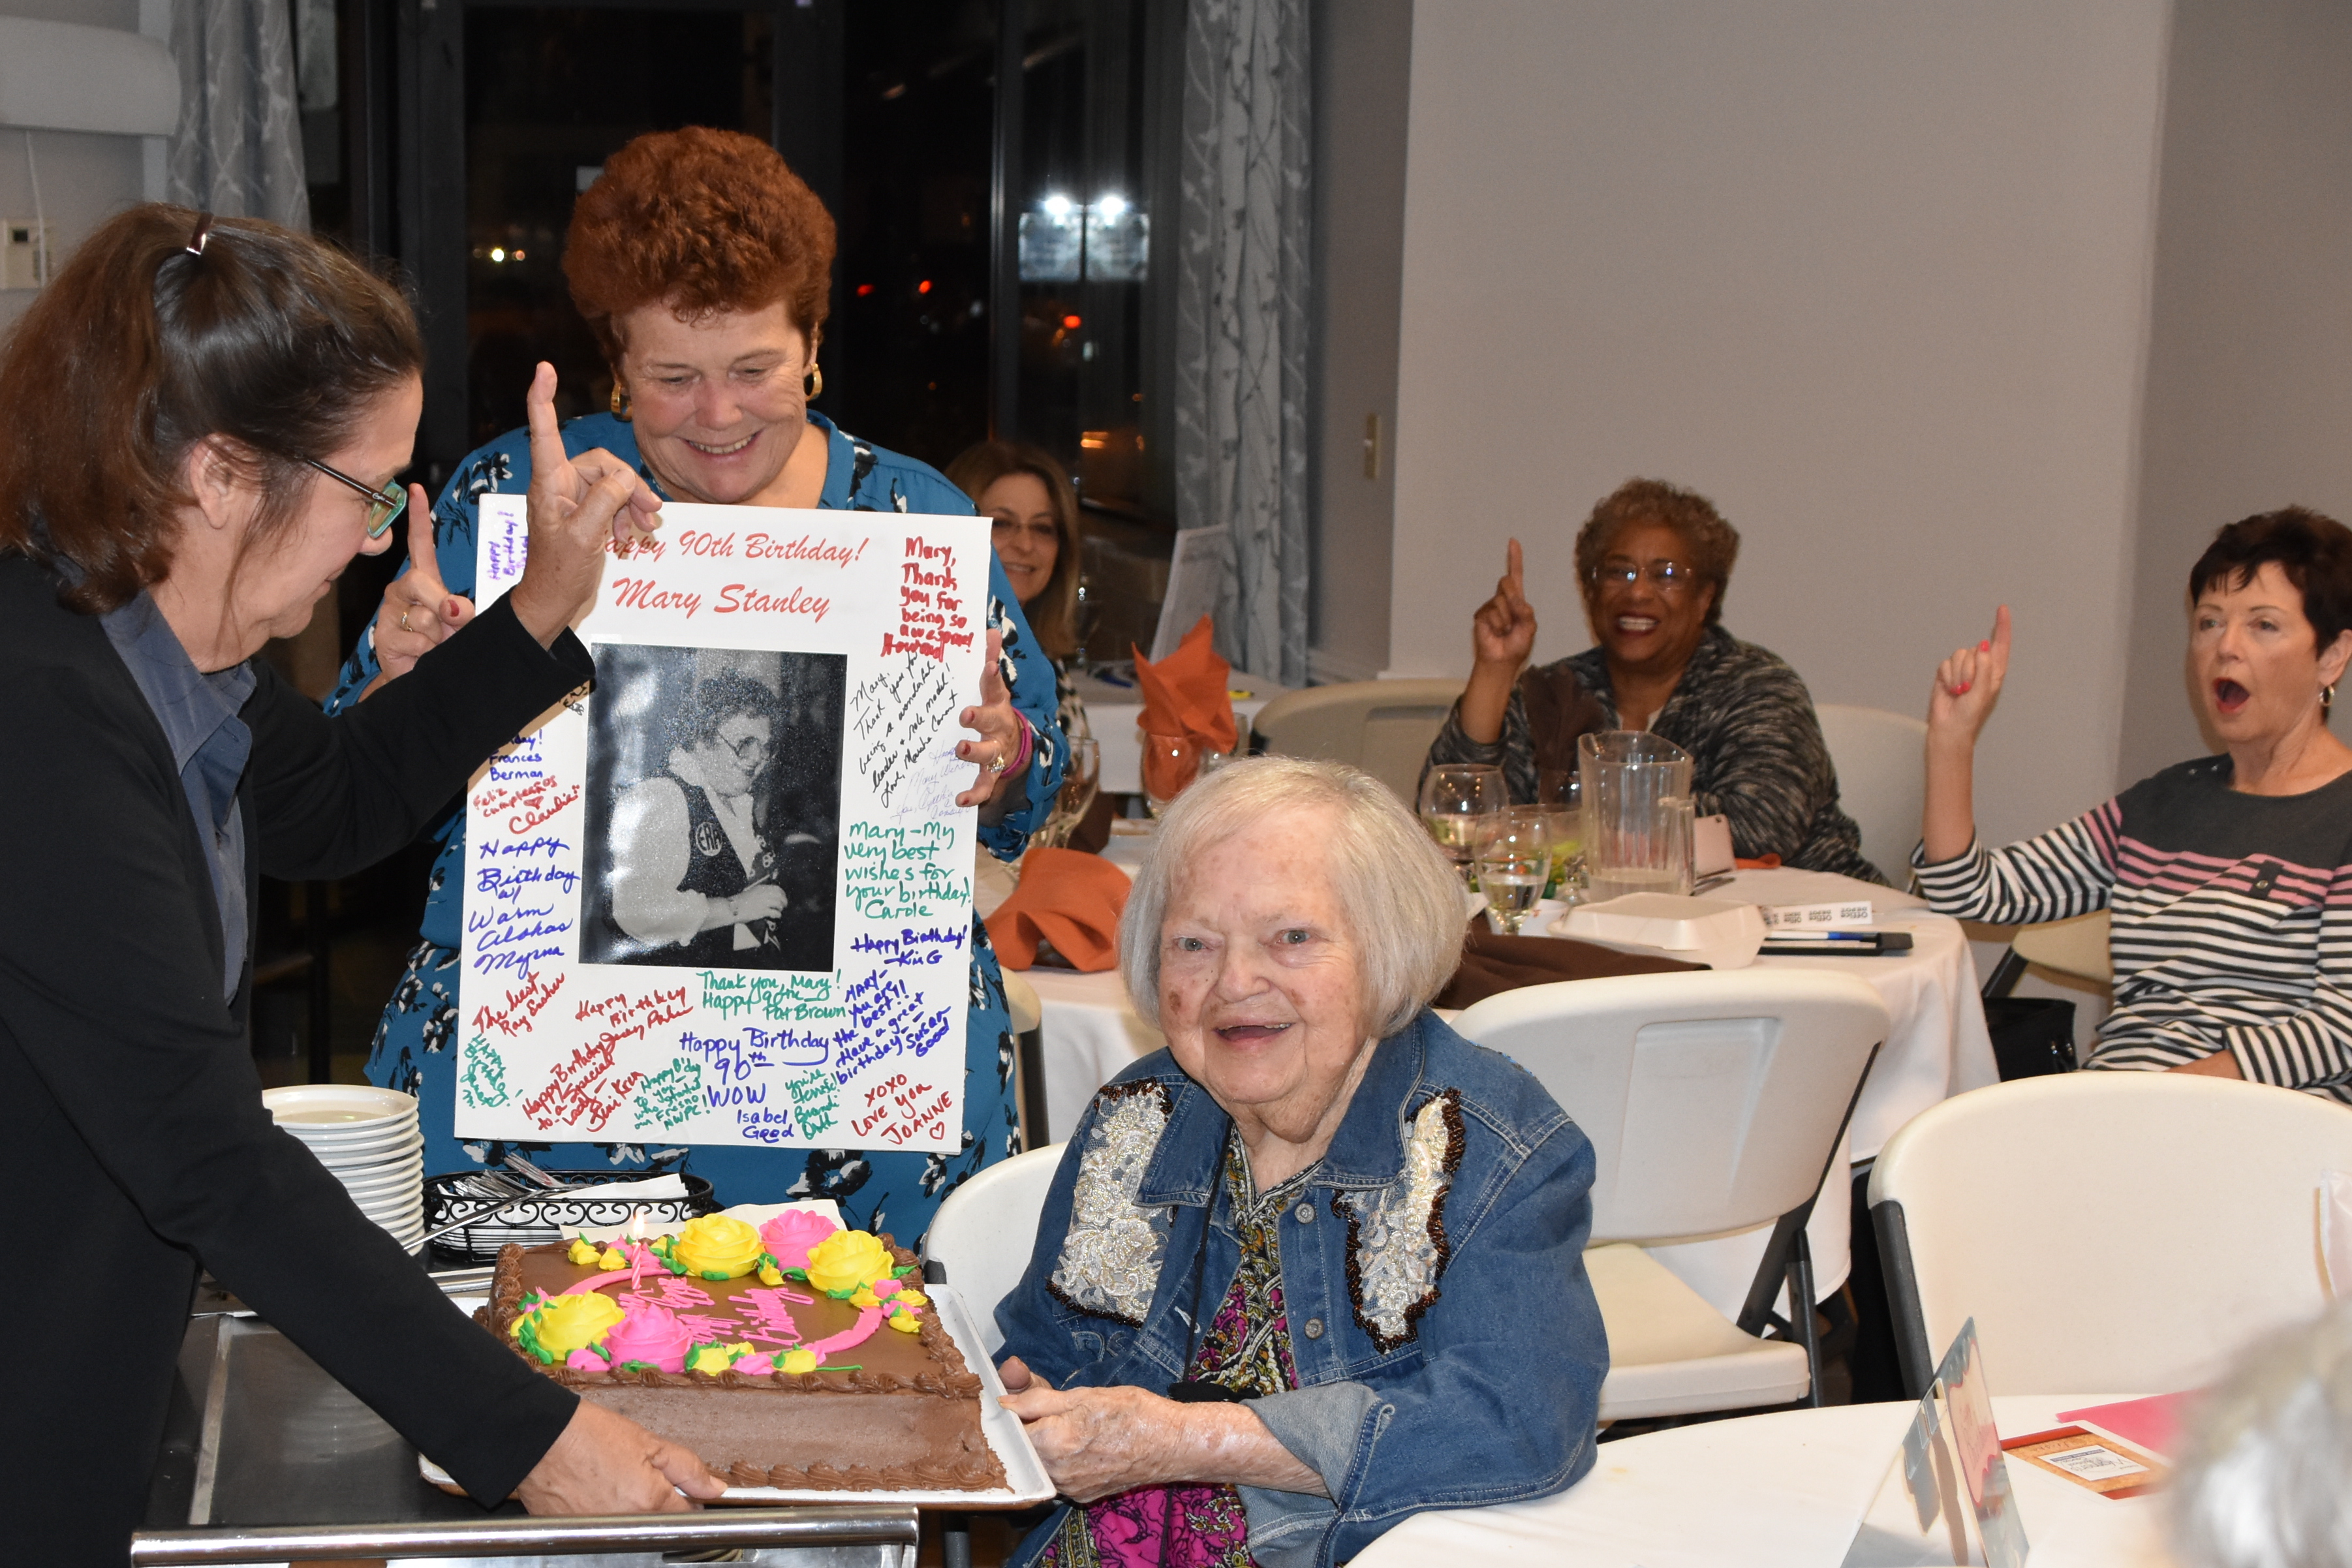 Happy
Birthday!
appy 90th Birthday!
Mary Stanley
Mary,
Thank
you for
being so
awesome!
Howard
Mary,
Thank you for
being a wonderful
leader & role model!
Love,
ERA
day!
Frances
Berman
Feliz
cumpleaños
Claudia
Happy
Birthday
w/
Warm
Alohas
Myrna
Mary-My
very best
wishes for
your birthday!
Carole
Happy Birthday!
-Kim G
The best
Ray
Happy
Birthday
Thank you, Mary!
Happy 90th
Pat Brown
MARY-
you are
the best!!
Have a great
birthday-
Susan
Good
Happy Birthday
90th
WOW
Isabel
Good
Happy Birthday
to-a Special
Lady-
Happy B'day
to you-
who started
our Fresno
NWPC!
you're
terrific!
XOXO
LOVE YOU
JOANNE
Happy
Birthday
Office
DEPOT